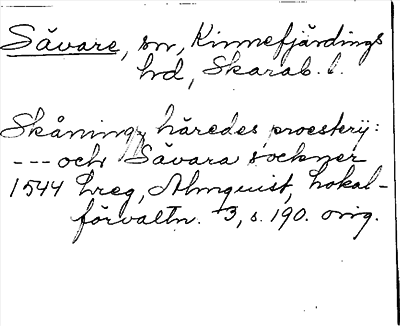 Såvare, sn, Kinnefjärdings
hd, Skarab. l.
Skånings häredes proesterij:
--- och Såvara sockner
1544 Lreg, Almquist, Lokal-
förvaltn. 3, s. 190. orig.